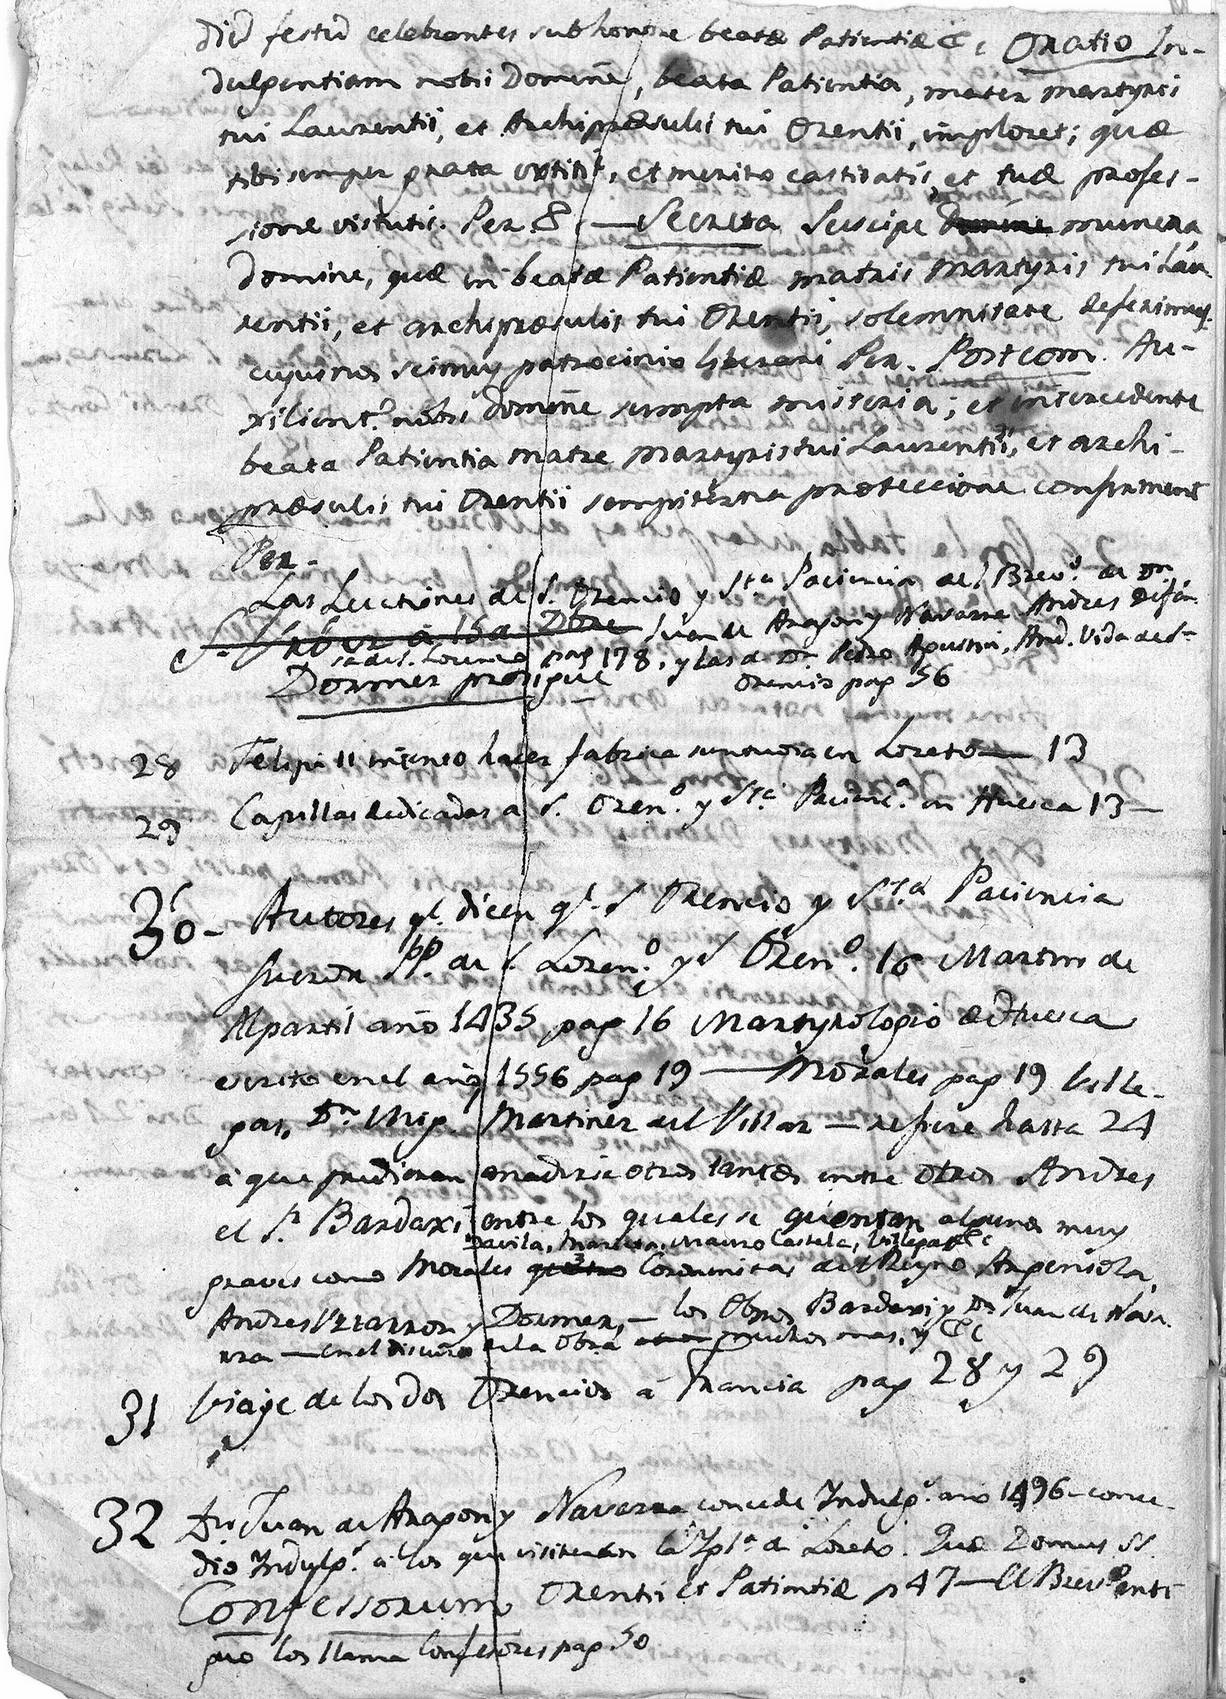 diē festū celebrantes sub honore beatæ Patientiæ &c. Oratio In-
dulgentiam nobis Domine, beata Patientia, mater martyris
tui Laurentii, et Archipræsulis tui Orentii, imploret; quæ
tibi semper grata extitit, et merito castitatis, et tuæ profes-
sione virtutis. Per &. — Secreta Suscipe munera
domine, quæ in beatæ Patientiæ matris martyris tui Lau-
rentii, et archipræsulis tui Orentii, solemnitate deferimus
cujus nos scimus patrocinio liberari Per. Postcom. Au-
xilient.r nobis domine sumpta misteria; et intercedente
beata Patientia matre martyris tui Laurentii, et archi-
præsulis tui Orentii sempiterna protectione confirment
Per.
Las Lectiones de S. Orencio y Sta Paciencia del Brev.o de Dn
Juan de Aragon y Navarra Andres Defen-
sa de S. Lorenzo pag 178, y las de Dn Pedro Agustin, And. Vida de Sn
Dormer prosigue Orencio pag 56
28 Felipe II intento hacer fabrica suntuosa en Loreto — 13
29 Capillas dedicadas a S. Oren.o y Sta Pacienc.a en Huesca 13 —
30- Autores q.e dicen q.e S Orencio y S.ta Paciencia
fueron PP. de S Loren.o y S Oren.o 16 Martin de
Alpartil año 1435 pag 16 Martyrologio de Huesca
escrito en el año 1556 pag 19 — Morales pag 19 Ville-
gas, Dn Mig. Martinez del Villar — refiere hasta 24
a que pudieran anadirse otros tantos entre otros Andres
el Sr Bardaxi entre los quales se quentan algunos muy
Davila, Mauro Castela, Villegas &c
graves como Morales Coronistas del Reyno Argensola,
Andres Uztarroz y Dormer, — los Obpos Bardaxi y Dn Juan de Nava-
rra — en el discurso de la Obra muchos mas, y &c
31 Viaje de los dos Orencios á Francia pag 28 y 29
32 Dn Juan de Aragon y Navarra concede Indulg.s año 1496 – conce-
dio Indulg.s a los que visitaran la Igl.a de Loreto. Quæ Domus SS.
Confessorum Orentii et Patientiæ p 47 — El Brev.o anti
guo los llama Confesores pag 50